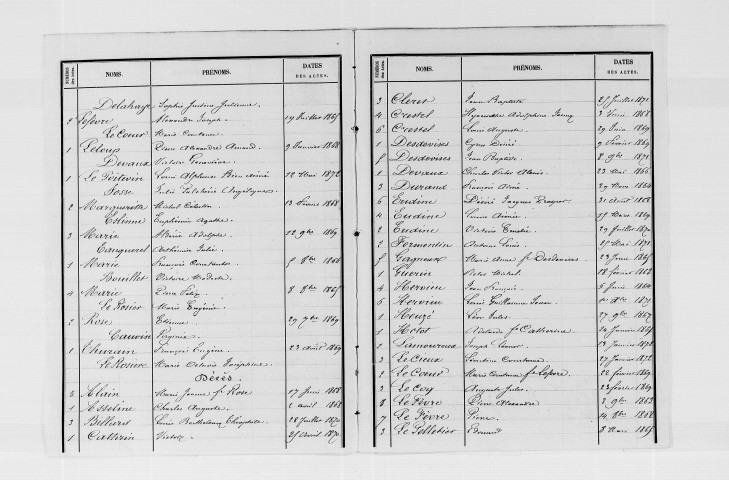 NUMÉROS des Actes. NOMS. PRÉNOMS. DATES DES ACTES.
Delahaye Sophie Justine Julienne.
2 Lefèvre Alexandre Joseph. 19 Juillet 1865
Le Coeur Marie Constance
1 Leloup Pierre Alexandre Amand. 9 Janvier 1868
Devaux Victoire Geneviève.
1 Le Poitevin Louis Alphonse Bien Aimé 12 Mai 1872
Fosse
2 Marguerite Michel Célestin 13 Février 1868
Etienne Euphémie Agathe
3 Marie Désiré Adolphe. 12 9bre 1869
Canquerel Anthémise Julie.
1 Marie François Constantin 5 8bre 1866
Bouillet Victoire Modeste
4 Marie Pierre Félix. 8 8bre 1865
Le Rosier Marie Eugénie.
2 Rose Etienne 29 7bre 1869
Cauvin Virginie.
1 Thuram François Eugène. 23 Août 1869
Le Rosier Marie Octavie Joséphine
Décès
5 Alain Marie Jeanne fe Rose 17 Juin 1868
1 Asseline Charles Auguste 2 Avril 1868
3 Billard Louis Barthélemy Théophile 28 Juillet 1870
1 Catherin Victor 25 Avril 1870
NUMÉROS des Actes. NOMS. PRÉNOMS. DATES DES ACTES.
3 Clerus Jean Baptiste 25 Juillet 1871
4 Crestel Hyacinthe Adolphine Fanny 3 Février 1868
6 Crestel Louis Auguste 29 Juin 1869
1 Desdevises Cyrus Désiré 9 Février 1869
5 Desdevises Jean Baptiste 8 9bre 1871
1 Devaux Charles Victor Alexis 23 Mai 1866
3 Durand François Aimé 29 Mars 1864
6 Eudine Désiré Jacques 31 Août 1868
4 Eudine Louis Aimée 27 Mars 1869
2 Eudine Victoire Emélie 29 Juillet 1870
2 Formentin Antoine Louis 27 Mai 1871
5 Gagneux Marie Anne fe Desdevises 23 Juin 1865
1 Guérin Victor Michel 18 Février 1863
4 Hervieu Jean François 5 Juin 1864
6 Hervieu Louis Guillaume Jean 8bre 1871
1 Heuzé Léon Jules 27 9bre 1867
1 Hotot Adélaïde fe Catherine 20 Janvier 1865
2 Lamoureux Joseph 13 Janvier 1872
3 Le Cieux Léontine Constance 27 Janvier 1872
2 Le Coeur Marie Constance fe Lefèvre 22 Février 1869
3 Le Coq Auguste Jules 23 Février 1869
8 Le Fèvre Pierre Alexandre 3 9bre 1863
7 Le Fèvre Pierre 14 8bre 1868
3 Le Pelletier Edouard 8 Mars 1865